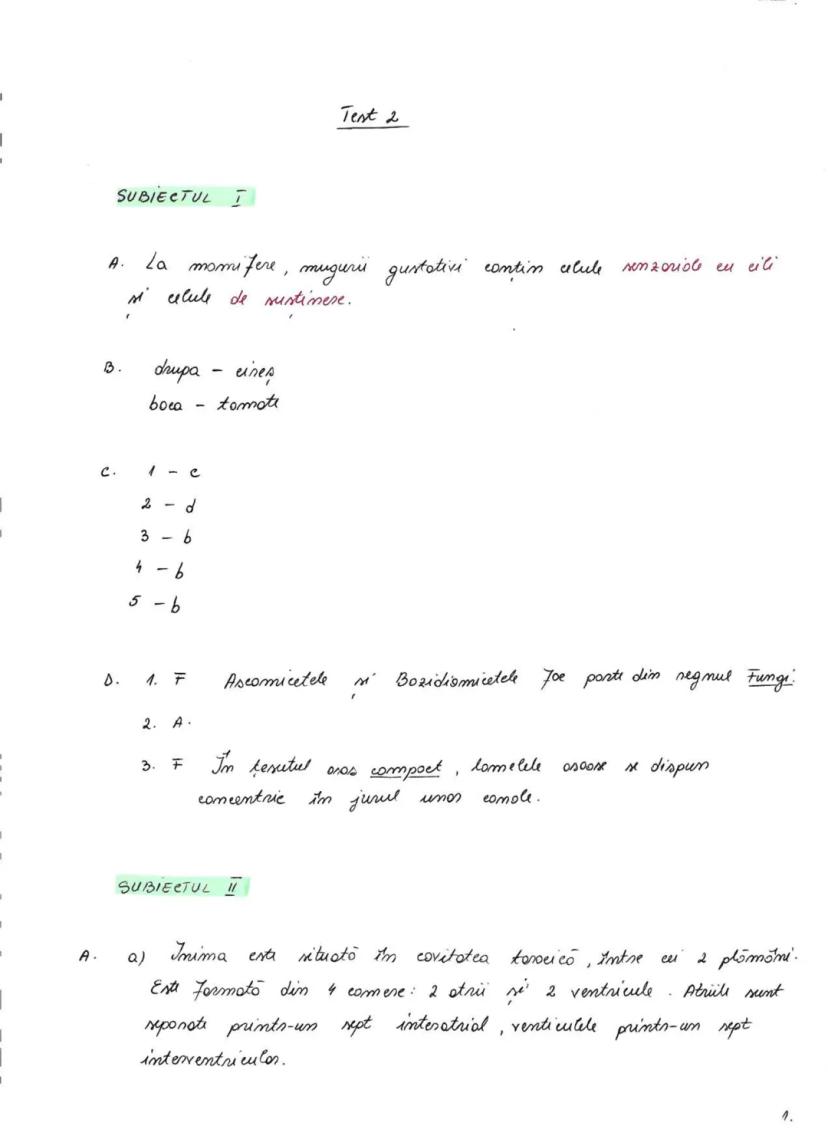 Test 2
SUBIECTUL I
A. La mamifere, mugurii gustativi conțin celule senzoriale cu cili
și celule de susținere.
B. drupa - cireș
baca - tomate
C. 1 - c
2 - d
3 - b
4 - b
5 - b
D. 1. F Ascomicetele și Bazidiomicetele fac parte din regnul Fungi.
2. A.
3. F În țesutul osos compact, lamelele osoase se dispun
concentric în jurul unor canale.
SUBIECTUL II
A. a) Inima este situată în cavitatea toracică, între cei 2 plămâni.
Este formată din 4 camere: 2 atrii și 2 ventricule. Atriile sunt
separate printr-un sept interatrial, venticulele printr-un sept
interventricular.
1.